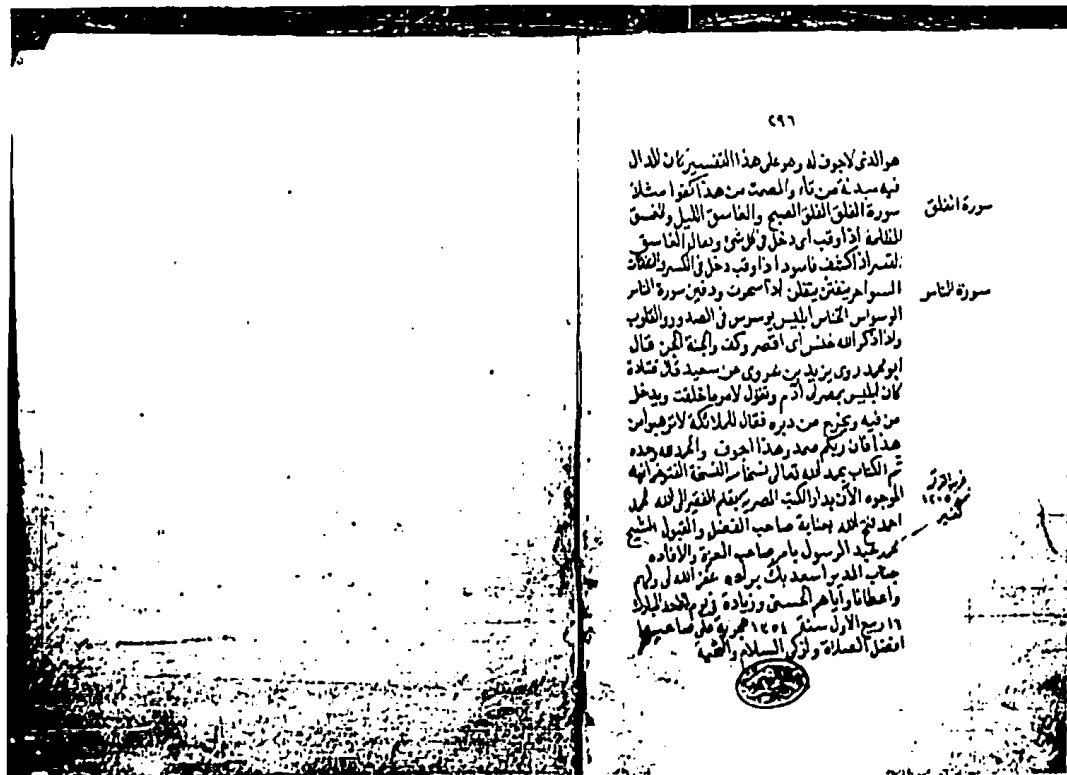 ٢٩٦
هو الذى لا جوف له وهو على هذا التفسير كان الدال
فيه مبدلة من تاء والمصمت من هذا كفوا مثلا
سورة الفلق
سورة الفلق الفلق الصبح والغاسق الليل والغسق
الظلمة اذا وقب اى دخل فى كل شئ ويقال الغاسق
القمر اذا كسف فاسود اذا وقب دخل فى الكسوف النفاثات
السواحر ينفثن يتفلن اذا سحرن ورقين سورة الناس
سورة الناس
الوسواس الخناس ابليس يوسوس فى الصدور والقلوب
واذا ذكر الله خنس اى اقصر وكف والجنة الجن قال
ابو محمد روى يزيد بن عن سعيد قال قتادة
كان ابليس ادم ويقول لامر ما خلقت ويدخل
من فيه ويخرج من دبره فقال للملائكة لا ترهبوا من
هذا فان ربكم صمد وهذا اجوف والحمد لله وحده
تم الكتاب بحمد الله تعالى النسخة الفتوغرافيه
الموجوده الآن بدار الكتب المصريه بقلم الفقير الى الله محمد
احمد فتح الله بعناية صاحب الفضل والقبول الشيخ
محمد عبد الرسول بامر صاحب العزة والافاده
جناب المدير اسعد بك براده غفر الله لى ولهم
واعطانا واياهم الحسنى وزيادة فى يوم الاحد المبارك
١٦ ربيع الاول سنة هجرية على صاحبها
افضل الصلاة وازكى السلام والتحية